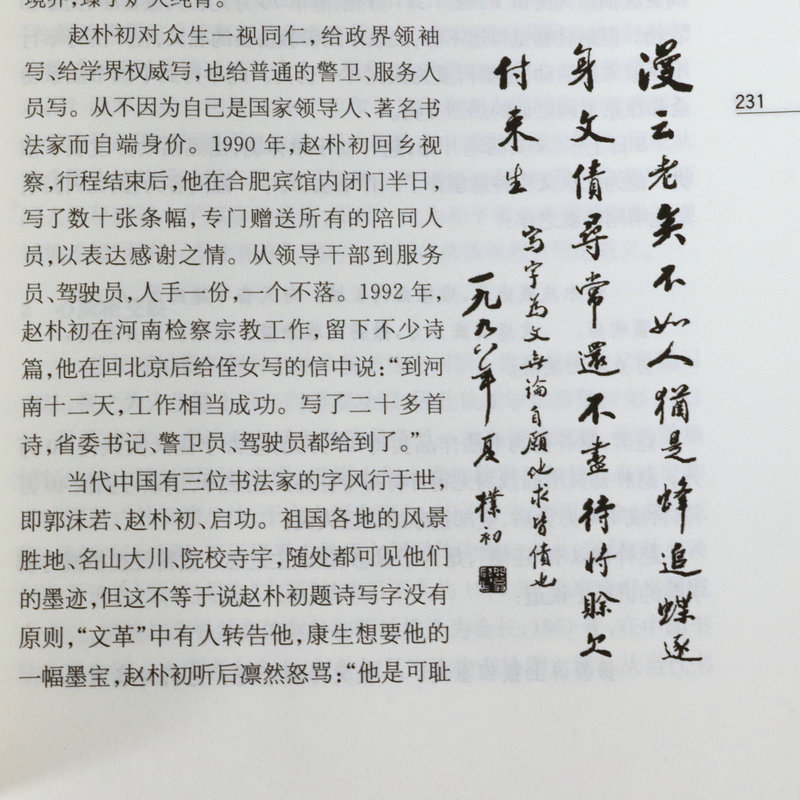 赵朴初对众生一视同仁，给政界领袖
写、给学界权威写，也给普通的警卫、服务人
员写。从不因为自己是国家领导人、著名书
法家而自端身价。1990 年，赵朴初回乡视
察，行程结束后，他在合肥宾馆内闭门半日，
写了数十张条幅，专门赠送所有的陪同人
员，以表达感谢之情。从领导干部到服务
员、驾驶员，人手一份，一个不落。1992 年，
赵朴初在河南检察宗教工作，留下不少诗
篇，他在回北京后给侄女写的信中说：“到河
南十二天，工作相当成功。写了二十多首
诗，省委书记、警卫员、驾驶员都给到了。”
当代中国有三位书法家的字风行于世，
即郭沫若、赵朴初、启功。祖国各地的风景
胜地、名山大川、院校寺宇，随处都可见他们
的墨迹，但这不等于说赵朴初题诗写字没有
原则，“文革”中有人转告他，康生想要他的
一幅墨宝，赵朴初听后凛然怒骂：“他是可耻
漫云老矣不如人猶是蜂追蝶逐
身文債尋常還不盡待将賒欠
付来生
写字为文无论自願他求皆债也
年夏 樸初
231